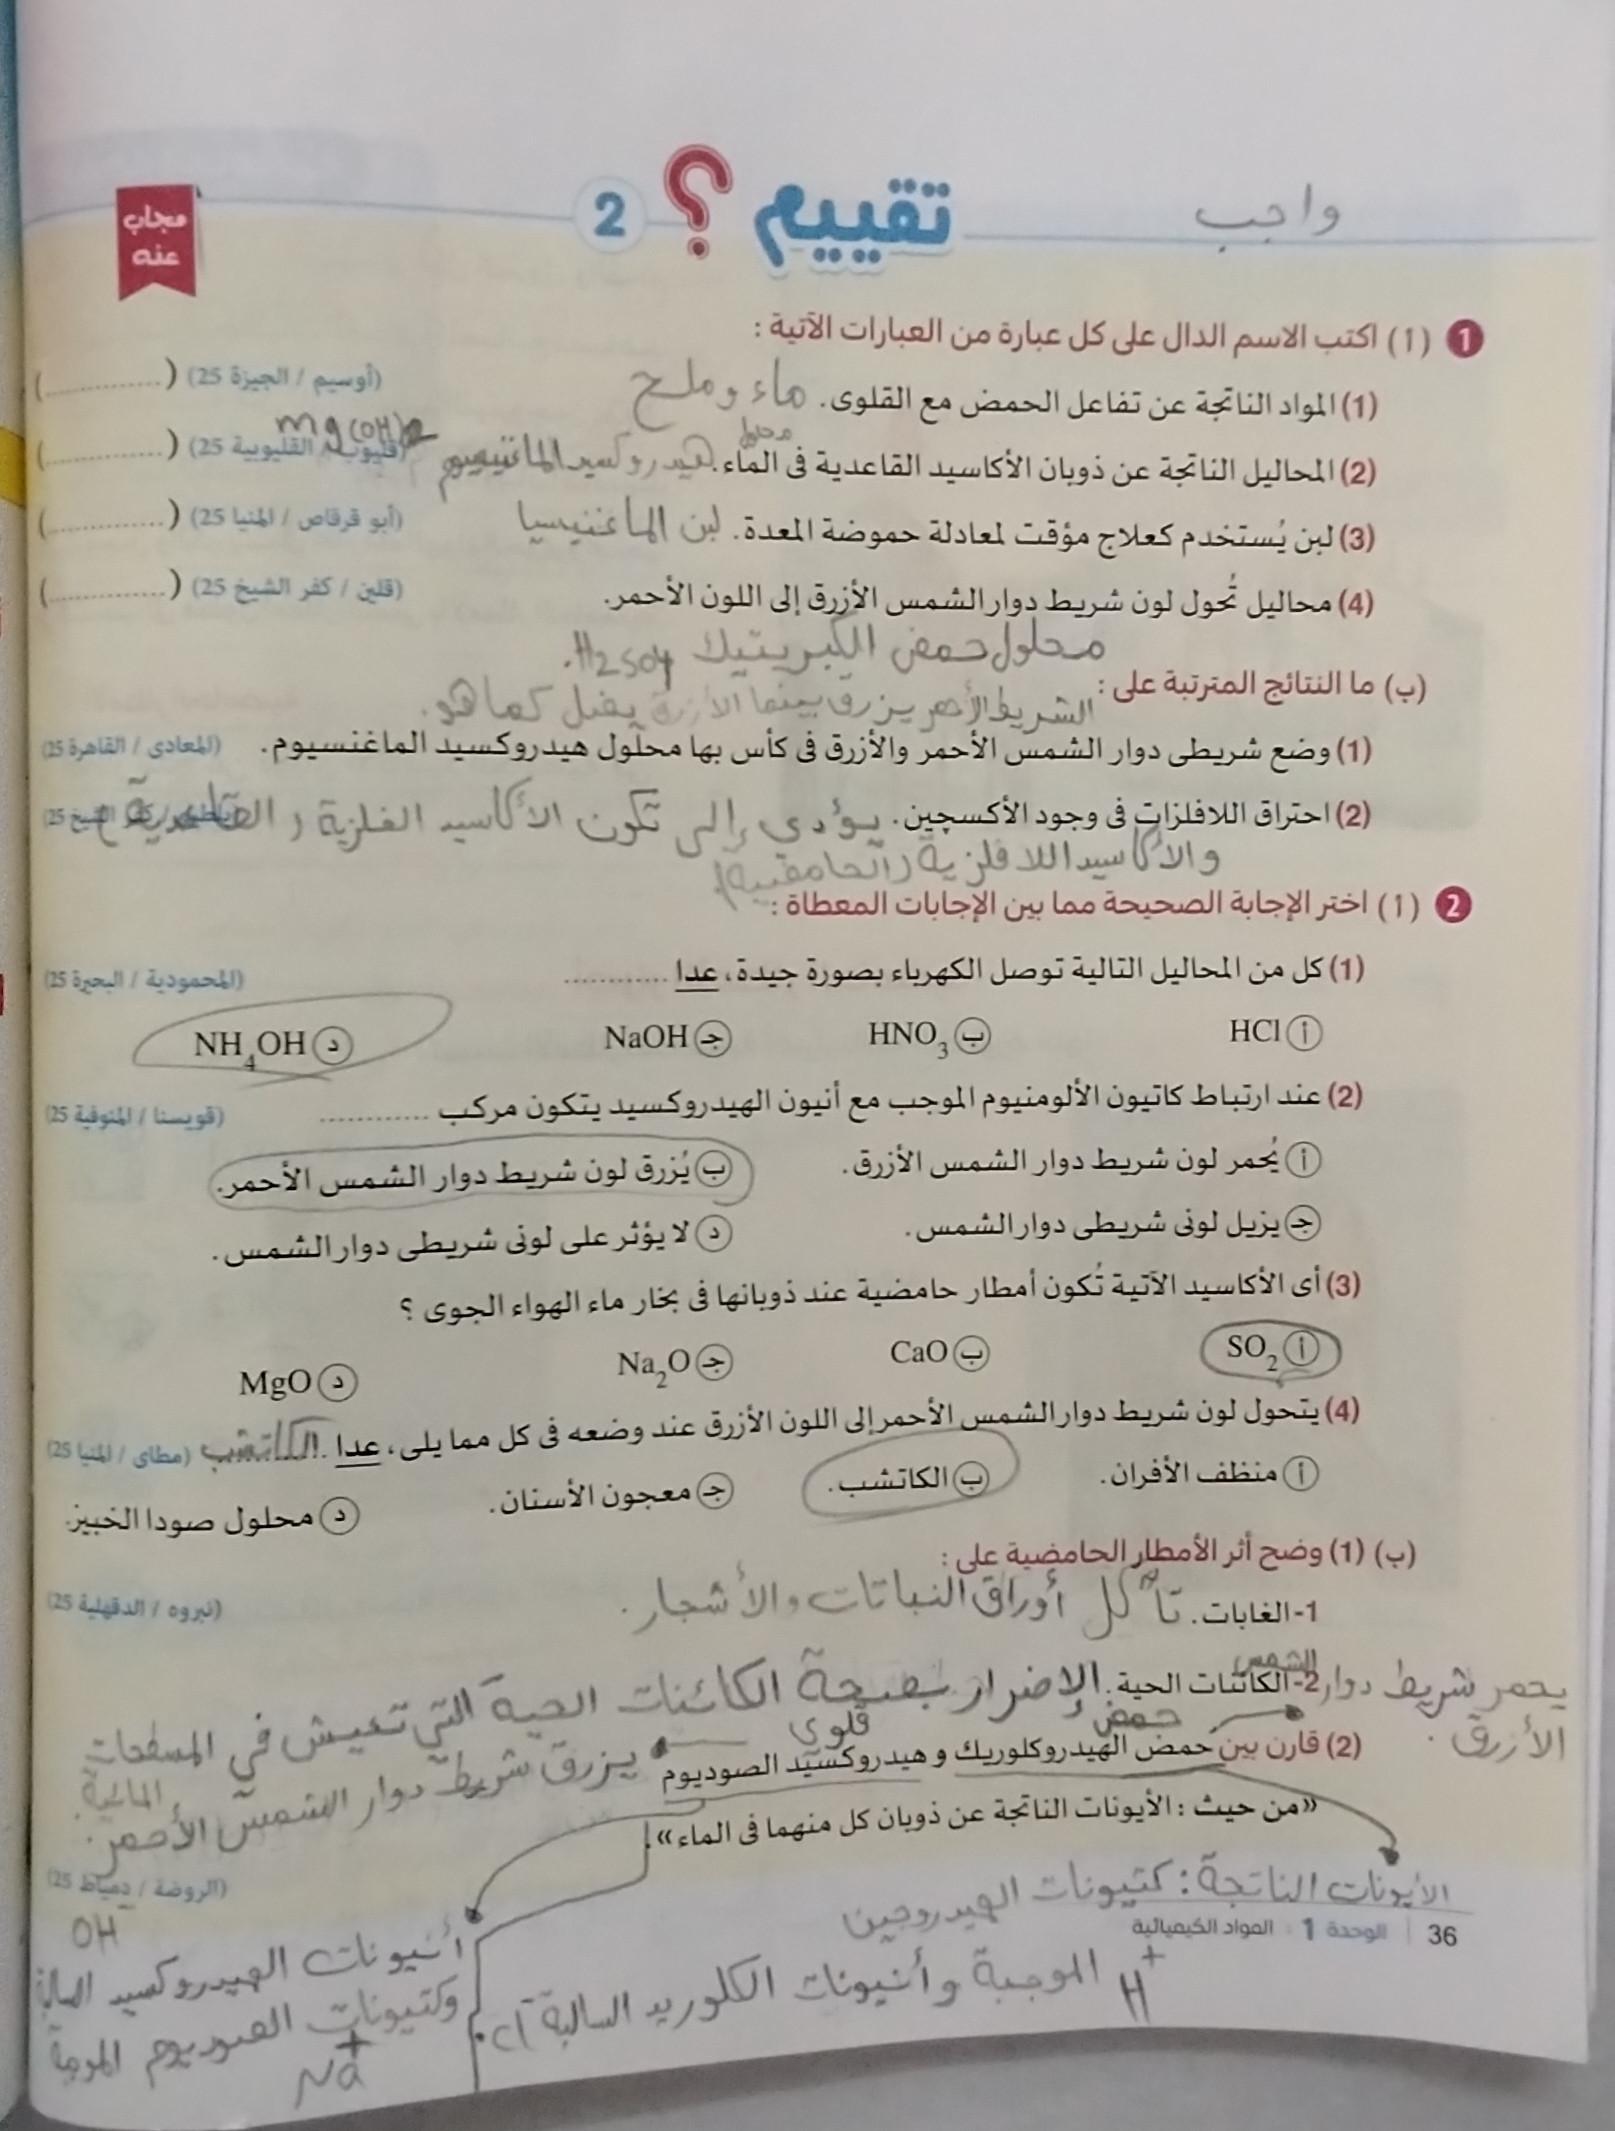 واجب
تقييم ؟ 2
مجاب
عنه
1 (أ) اكتب الاسم الدال على كل عبارة من العبارات الآتية :
(1) المواد الناتجة عن تفاعل الحمض مع القلوى. ماء وملح (أوسيم / الجيزة 25) (............)
(2) المحاليل الناتجة عن ذوبان الأكاسيد القاعدية فى الماء. محلول هيدروكسيد الماغنيسيوم Mg(OH)2 (قليوب / القليوبية 25) (............)
(3) لبن يُستخدم كعلاج مؤقت لمعادلة حموضة المعدة. لبن الماغنيسيا (أبو قرقاص / المنيا 25) (............)
(4) محاليل تُحول لون شريط دوار الشمس الأزرق إلى اللون الأحمر. (قلين / كفر الشيخ 25) (............)
محلول حمض الكبريتيك H2SO4.
(ب) ما النتائج المترتبة على : الشريط الأحمر يزرق بينما الأزرق يفضل كما هو.
(1) وضع شريطى دوار الشمس الأحمر والأزرق فى كأس بها محلول هيدروكسيد الماغنسيوم. (المعادى / القاهرة 25)
(2) احتراق اللافلزات فى وجود الأكسجين. يؤدي إلى تكون الأكاسيد الفلزية (القاعدية) (كفر الشيخ 25)
والأكاسيد اللافلزية (الحامضية).
2 (أ) اختر الإجابة الصحيحة مما بين الإجابات المعطاة :
(1) كل من المحاليل التالية توصل الكهرباء بصورة جيدة، عدا ............ (المحمودية / البحيرة 25)
أ HCl ب HNO3 جـ NaOH د NH4OH
(2) عند ارتباط كاتيون الألومنيوم الموجب مع أنيون الهيدروكسيد يتكون مركب ............ (قويسنا / المنوفية 25)
أ يُحمر لون شريط دوار الشمس الأزرق. ب يُزرق لون شريط دوار الشمس الأحمر.
جـ يزيل لونى شريطى دوار الشمس. د لا يؤثر على لونى شريطى دوار الشمس.
(3) أى الأكاسيد الآتية تُكون أمطار حامضية عند ذوبانها فى بخار ماء الهواء الجوى ؟
أ SO2 ب CaO جـ Na2O د MgO
(4) يتحول لون شريط دوار الشمس الأحمر إلى اللون الأزرق عند وضعه فى كل مما يلى، عدا الكاتشب. (مطاى / المنيا 25)
أ منظف الأفران. ب الكاتشب. جـ معجون الأسنان. د محلول صودا الخبيز.
(ب) (1) وضح أثر الأمطار الحامضية على :
1- الغابات. تآكل أوراق النباتات والأشجار. (نبروه / الدقهلية 25)
2- الكائنات الحية. الإضرار بصحة الكائنات الحية التي تعيش في المسطحات
المائية.
يحمر شريط دوار الشمس
الأزرق.
حمض قلوي
(2) قارن بين حمض الهيدروكلوريك و هيدروكسيد الصوديوم يزرق شريط دوار الشمس الأحمر.
«من حيث : الأيونات الناتجة عن ذوبان كل منهما فى الماء». (الروضة / دمياط 25)
الأيونات الناتجة : كتيونات الهيدروجين
الموجبة H+ وأنيونات الكلوريد السالبة Cl-.
OH
أنيونات الهيدروكسيد السالبة
وكتيونات الصوديوم الموجبة
Na+
36 الوحدة 1 : المواد الكيميائية